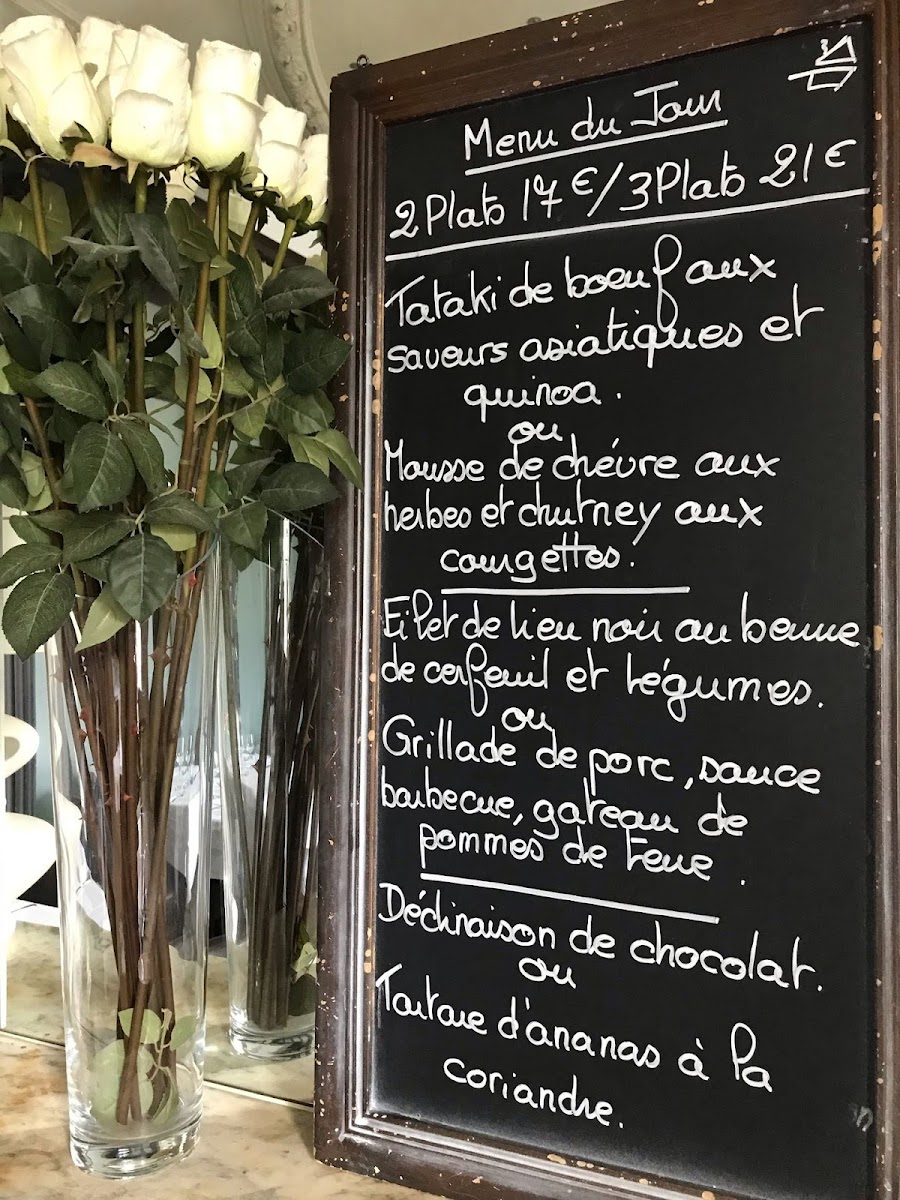 Menu du Jour
2 Plats 17€/3 Plats 21€
Tataki de boeuf aux
saveurs asiatiques et
quinoa.
ou
Mousse de chévre aux
herbes et chutney aux
courgettes.
Filet de lieu noir au beurre
de cerfeuil et légumes.
ou
Grillade de porc, sauce
barbecue, gateau de
pommes de terre.
Déclinaison de chocolat.
ou
Tartare d'ananas à la
coriandre.